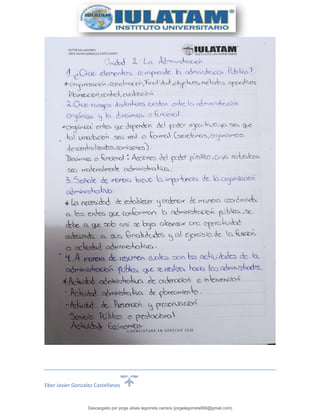 IULATAM
INSTITUTO UNIVERSITARIO
IULATAM
Unidad 2 La Administración
1.¿Que elementos comprende la administración Pública?
*organización, coordinación, finalidad, objetivos, métodos operativos
Planeación, control, evaluación
2. Que rasgos distintivos existen entre la administración
orgánica y la dinámica o funcional.
*organica: entes que dependen del poder ejecutivo, ya sea que
tal vinculación sea real o formal (secretarías, organismos
descentralizados, comisiones).
Dinamica o funcional: Acciones del poder público cuya naturaleza
sea materialmente administrativa.
3. Señale de manera breve la importancia de la organización
administrativa.
* La necesidad de establecer y ordenar de manera coordinada
a los entes que conforman la administración pública, se
debe a que solo así se logra alcanzar una operatividad
adecuada a sus finalidades y al ejercicio de la función
o actividad administrativa.
4. A manera de resumen cuales son las actividades de la
administración pública que se realiza hacia los administrados.
*Actividad administrativa de ordenación e intervención
- Actividad administrativa de planeamiento.
- Actividad de Prevención y preservación
Servicio Público o prestacional
Actividad Económica.
LICENCIATURA EN DERECHO
Eber Javier Gonzalez Castellanos
Descargado por jorge ulises lagorreta carrera (jorgelagorreta956@gmail.com)